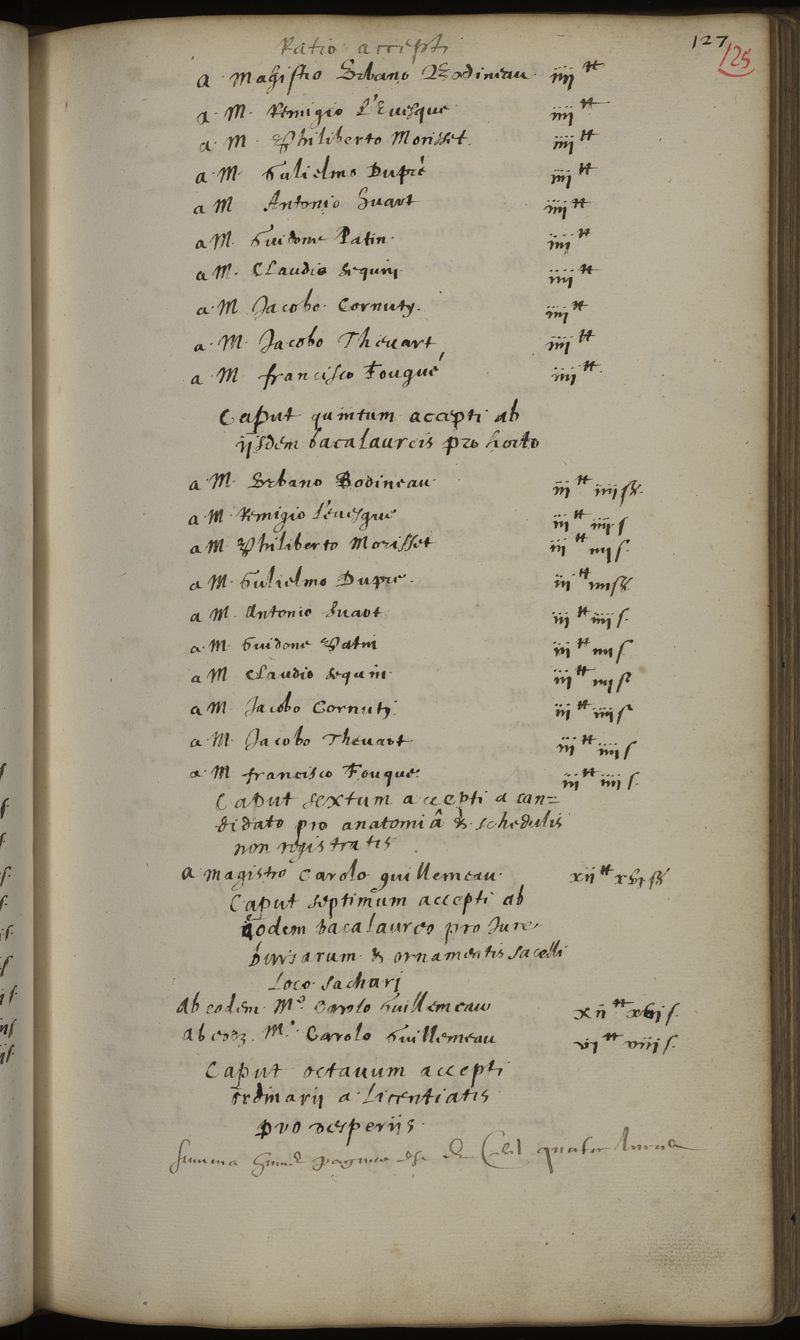 127
125
Ratio accepti
a Magistro Urbano Bodineau iiij tt
a M. Remigio L'Evesque iiij tt
a M. Philiberto Morisset. iiij tt
a M. Gulielmo Dupré iiij tt
a M Antonio Huart iiij tt
a M. Guidone Patin iiij tt
a M. Claudio Sequin iiij tt
a M Jacobo Cornuty. iiij tt
a M. Jacobo Thevart iiij tt
a M francisco Fouqué iiij tt
Caput quintum accepti ab
ijsdem bacalaureis pro horto
a M. Urbano Bodineau iij tt iiij s.
a M Remigio L'evesque iij tt iiij s
a M Philiberto Morisset iij tt iiij s.
a M. Gulielmo Dupre. iij tt iiij s.
a M. Antonio Huart iij tt iiij s.
a M. Guidone Patin iij tt iiij s
a M Claudio Sequin iij tt iiij s
a M. Jacobo Cornuty. iij tt iiij s
a M. Jacobo Thevart iij tt iiij s
a M francisco Fouque. iij tt iiij s.
Caput sextum accepti a can=
didato pro anatomiâ & schedulis
non registratis
a magistro Carolo guillemeau. xij tt xvj s
Caput septimum accepti ab
eodem bacalaureo pro Jure
bursarum & ornamentis sacelli
Loco sachari
Ab eodem Mo. Carolo Guillemeau xij tt xvj s.
Ab eod. Mo. Carolo Guillemeau vj tt viij s.
Caput octavum accepti
ordinarii a licentiatis
pro vesperiis.
Summa paginae est quatuor